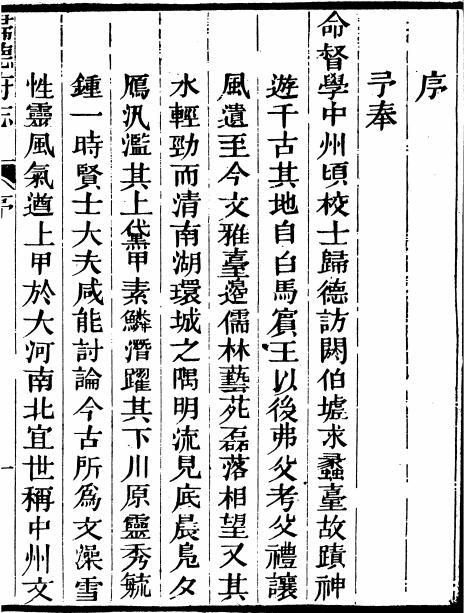 序
予奉
命督學中州頃校士歸德訪閼伯墟求蠡臺故蹟神
遊千古其地自白馬賓王以後弗父考父禮讓
風遺至今文雅臺邊儒林藝苑磊落相望又其
水輕勁而清南湖環城之隅明流見底晨鳧夕
鴈汎濫其上黛甲素鱗潛躍其下川原靈秀毓
鍾一時賢士大夫咸能討論今古所爲文澡雪
性靈風氣遒上甲於大河南北宜世稱中州文
歸德府志
序
一